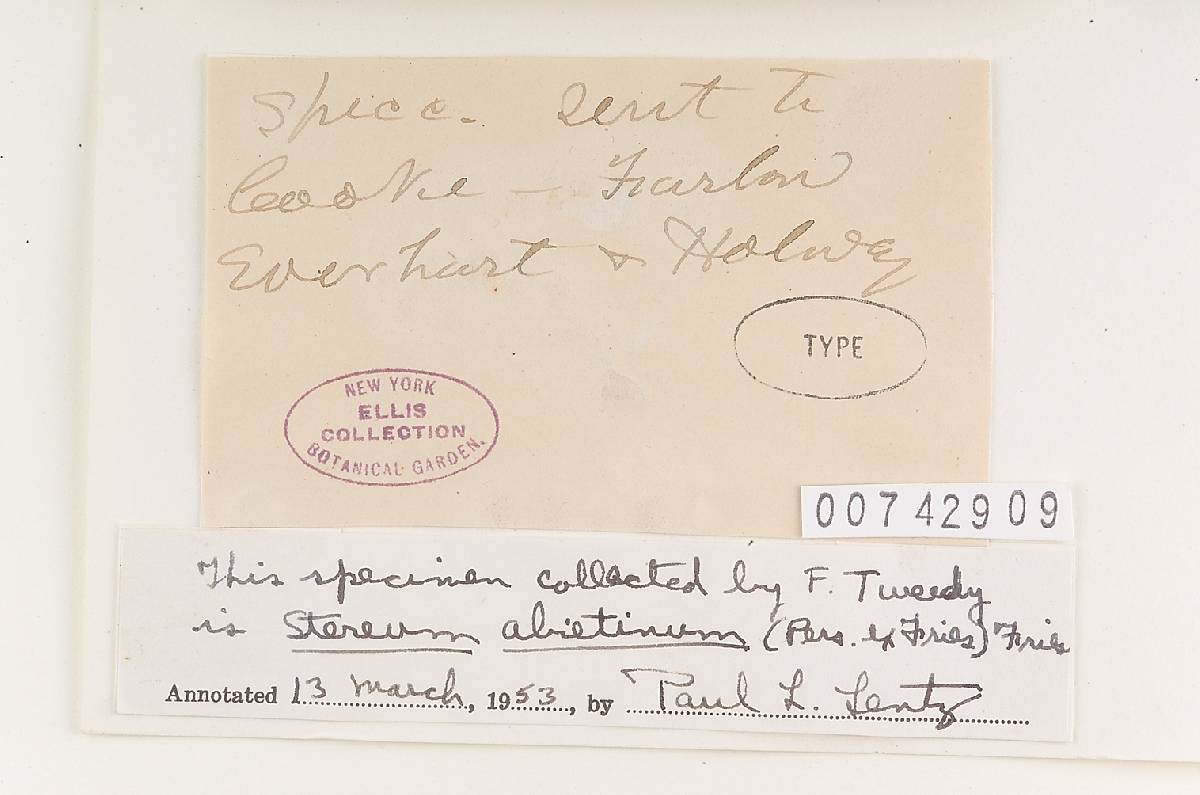 Specc. sent to
Cooke - Farlow
Everhart & Holway
TYPE
NEW YORK
ELLIS
COLLECTION
BOTANICAL GARDEN.
00742909
This specimen collected by F. Tweedy
is Stereum abietinum (Pers. ex Fries) Fries
Annotated 13 March, 1953, by Paul L. Lentz